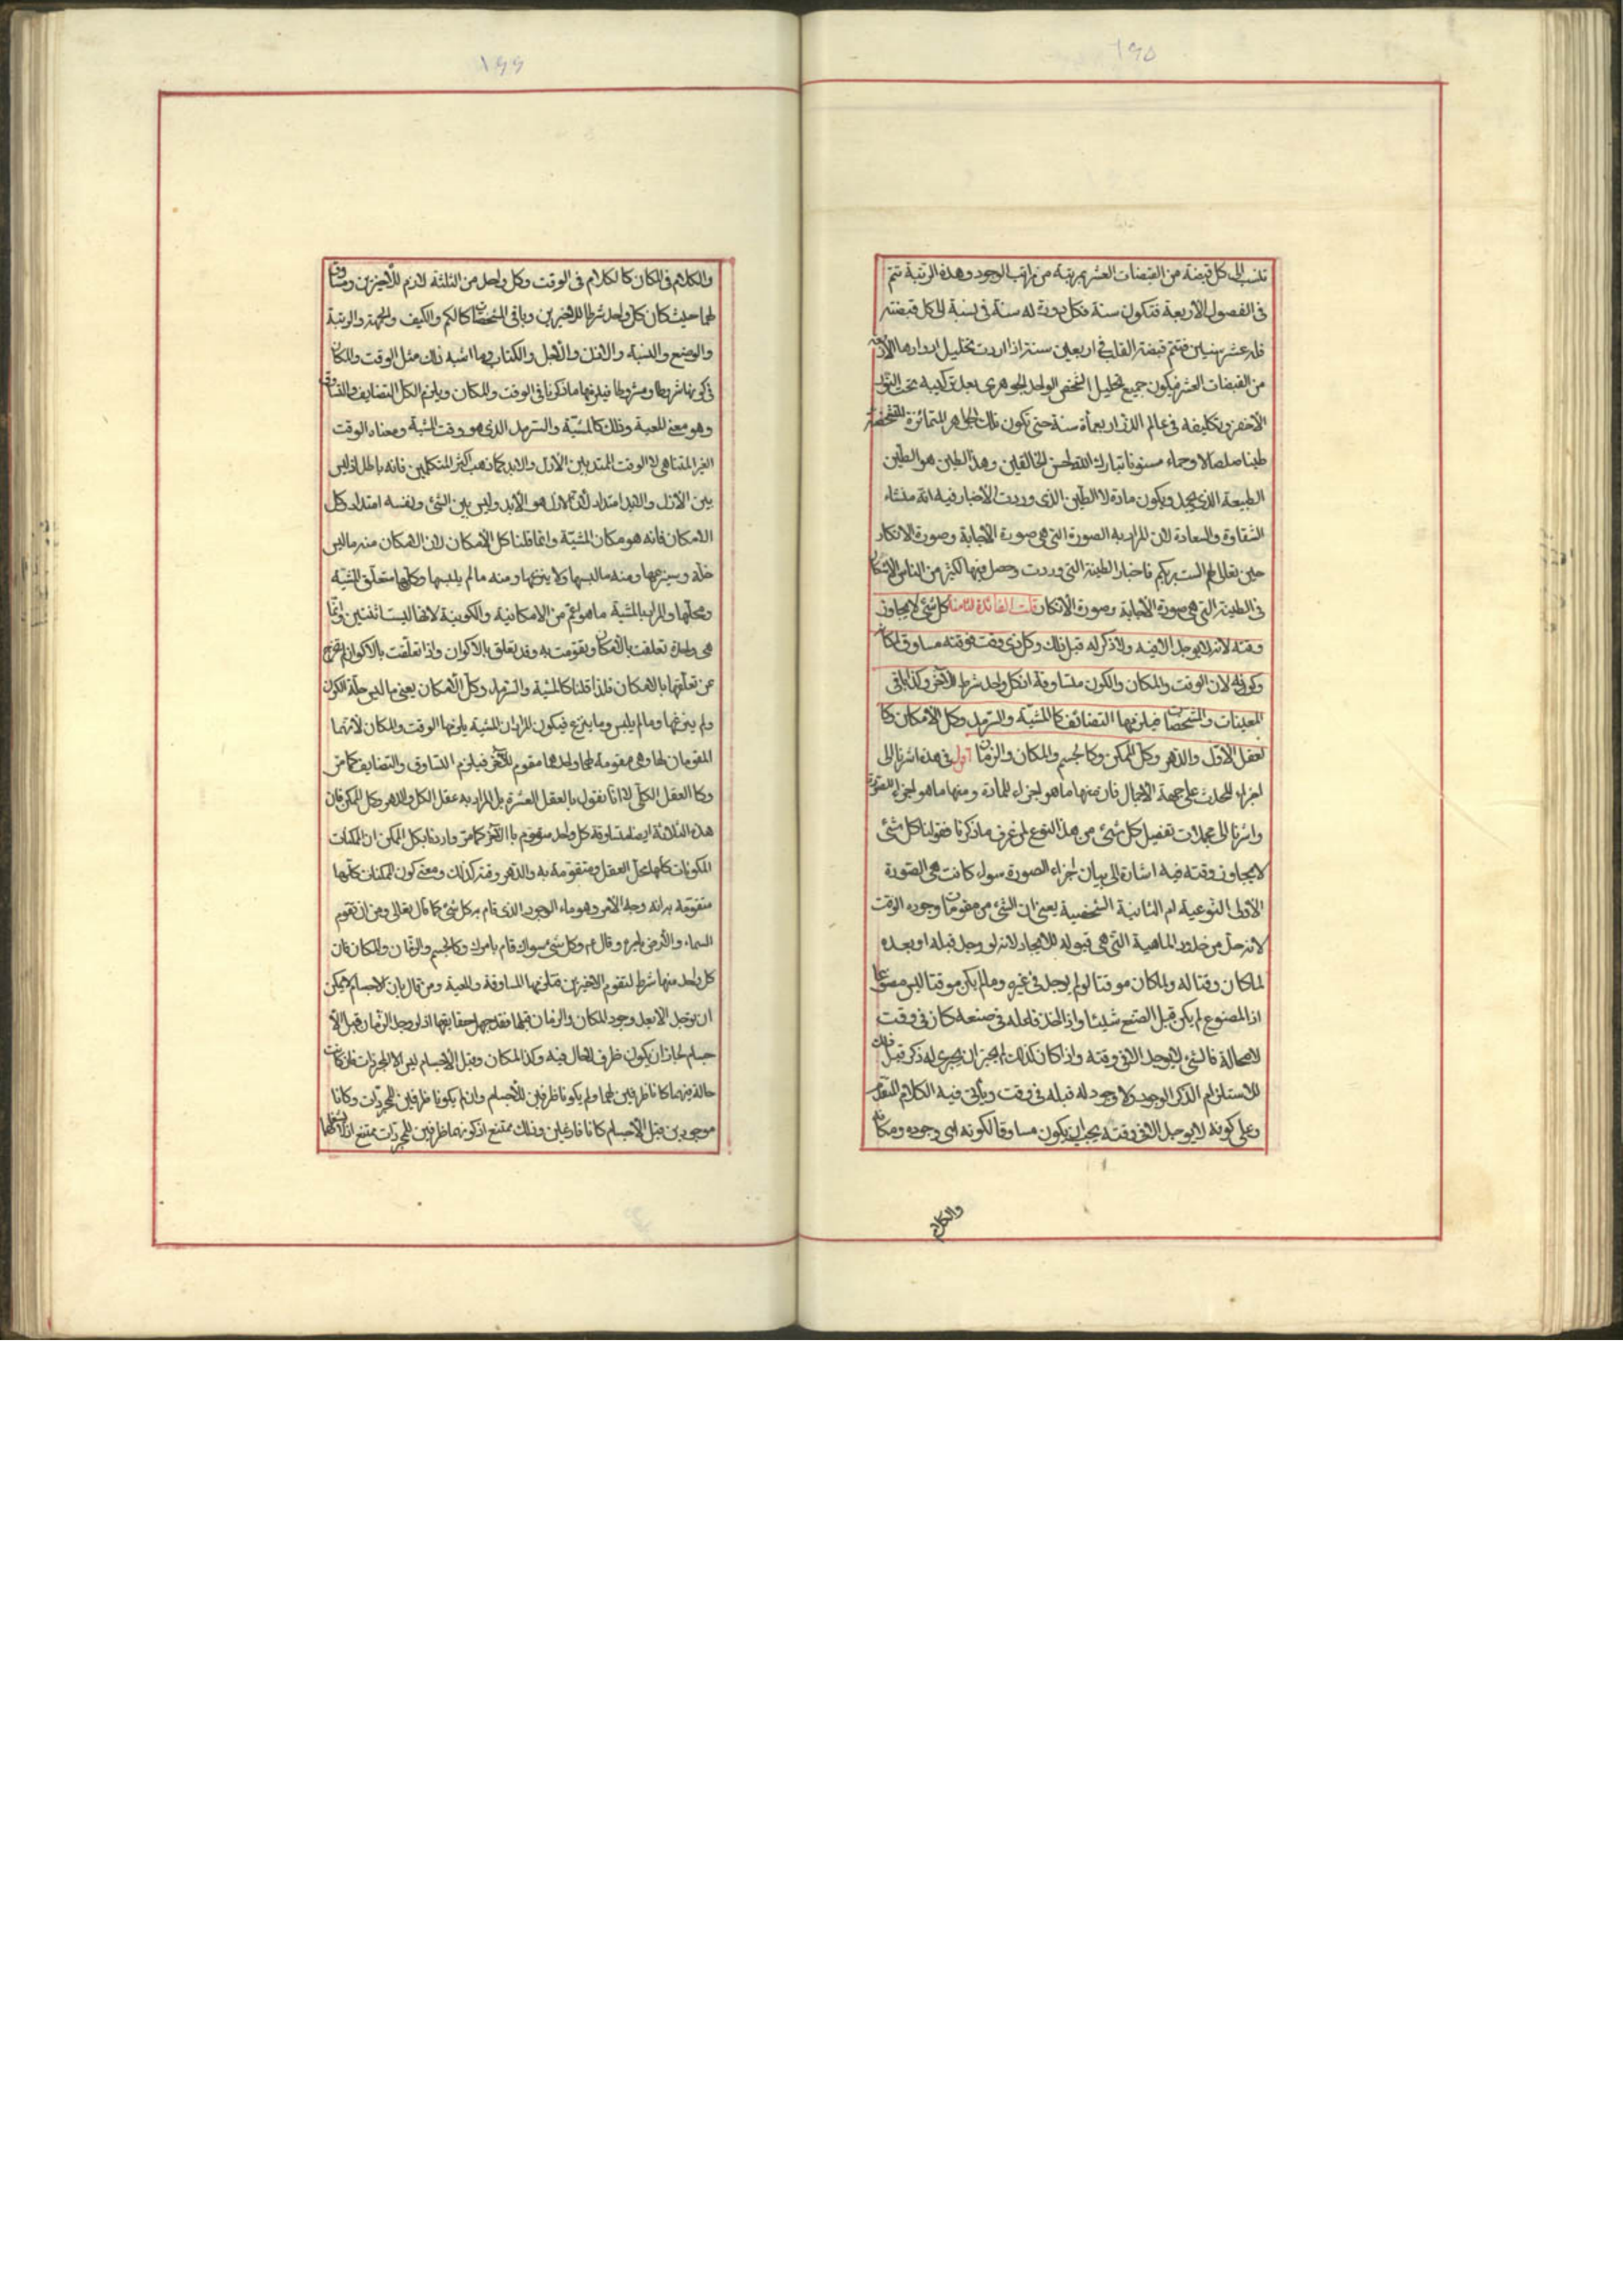 ١٩٥
تنسب الى كل قبضة من القبضات العشر بمرتبة من مراتب الوجود وهذه الرتبة تتم
فى الفصول الأربعة فتكون سنة فكل دورة له سنة فى نسبة الى كل قبضته
فله عشر سنين فتتم قبضة القلب فى اربعين سنة اذا اردت تحليل ادوارها
من القبضات العشر فيكون جميع تحليل الشخص الواحد الجوهرى بعد تركيبه تحت
الأخضر وتكليفه فى عالم الذر اربعمأة سنة حتى تكون تلك الجواهر المتمائزة
طينا صلصالا وحماء مسنونا تبارك الله احسن الخالقين وهذا الطين هو الطين
الطبيعة الذى ويكون مادة لا الطين الذى وردت الأخبار فيه انه منشاء
الشقاوة والسعادة لان المراد به الصورة التى هى صورة الأجابة وصورة الانكار
حين تعالى لهم الست بربكم فاخبار الطينة التى وردت وحصل فيها لكثير من الناس الأشكال
فى الطينة التى هى صورة الأجابة وصورة الانكار قلت الفائدة الثامنة كل شئ لا يجاوز
وقته لانه لا يوجد الا فيه ولا ذكر له قبل ذلك وكل ذى وقت فوقته مساوق لمكانه
وكونه لان الوقت والمكان والكون متساوقة اذ كل واحد شرط الاخر وكذا باقى
المعينات والمشخصات فيلزمها التضائف كالمشية والسرمد وكل الأمكان وكا
لعقل الأول والدهر وكل الممكن وكالجسم والمكان والزمان اقول فى هذه اشرنا الى
اجزاء المحدث على جهة الاجمال فان منها ما هو اجزاء للمادة ومنها ما هو اجزاء للصورة
واشرنا الى مجملات تفصيل كل شئ من هذا النوع لمن عرف ما ذكرنا فقولنا كل شئ
لا يجاوز وقته فيه اشارة الى بيان اجزاء الصورة سواء كانت هى الصورة
الأولى النوعية ام الثانية الشخصية يعنى ان الشئ من مقومات وجوده الوقت
لانه حد من حدود الماهية التى هى قبوله للايجاد لانه لو وجد قبله او بعده
لما كان وقتا له ولما كان موقتا لو لم يوجد فى غيره وما لم يكن موقتا ليس مصنوعا
اذ المصنوع لم يكن قبل الصنع شيئا واذا اخذ فاعله فى صنعه كان فى وقت
لا محالة فالشئ لا يوجد الا فى وقته واذا كان كذلك لم يجز ان يجرى له ذكر قبل ذلك
للاستلزام الذكر الوجود ولا وجود له قبله فى وقت ويأتى فيه الكلام المتقدم
وعلى كونه لا يوجد الا فى وقته يجب ان يكون مساوقا لكونه اى وجوده ومكانه
والكلام
١٩٦
والكلام فى المكان كالكلام فى الوقت وكل واحد من الثلثة لازم للأخيرين ومساوق
لهما حيث كان كل واحد شرطا للاخيرين وباقى المشخصات كالكم والكيف والجهة والرتبة
والوضع والنسبة والاذن والأجل والكتاب وما اشبه ذلك مثل الوقت والمكان
فى كونها شرطا ومشروطا فيلزمها ما ذكرنا فى الوقت والمكان ويلزم الكل التضايف والتساوق
وهو معنى المعية وذلك كالمشية والسرمد الذى هو وقت المشية ومعناه الوقت
الغير المتناهى لا الوقت الممتد بين الأزل والابد كما ذهب اكثر المتكلمين فانه باطل اذ ليس
بين الأزل والابد امتداد لأن الازل هو الأبد وليس بين الشئ ونفسه امتداد وكل
الامكان فانه هو مكان المشية وانما قلنا كل الأمكان لان الامكان منه ما لبس
حلة وسينزعها ومنه ما لبسها ولا ينزعها ومنه ما لم يلبسها وكلها متعلق المشية
ومحلها والمراد بالمشية ما هو اعم من الامكانية والكونية لانها ليست اثنتين وانما
هى واحدة تعلقت بالأمكان وتقومت به وقد تعلق بالاكوان واذا تعلقت بالاكوان لم تخرج
عن تعلقها بالامكان فلذا قلنا كالمشية والسرمد وكل الامكان يعنى ما لبس حلة الكون
ولم ينزعها وما لم يلبس وما ينزع فيكون المراد ان المشية يلزمها الوقت والمكان لانهما
المقومان لها وهى مقومة لهما واحدهما مقوم للاخر فيلزم التساوق والتضايف كما مر
وكا العقل الكلى لا انا نقول بالعقل العشرة بل المراد به عقل الكل والدهر وكل الممكن فان
هذه الثلاثة ايضا متساوقة كل واحد متقوم بالاخر كما مر واردنا بكل الممكن ان الممكنات
المكونات كلها محل العقل ومتقومة به والدهر وقته كذلك ومعنى كون الممكنات كلها
متقومة به انه وجه الأمر وهو ماء الوجود الذى قام به كل شئ كما قال تعالى ومن اياته ان تقوم
السماء والأرض بامره وقال ع وكل شئ سواك قام بامرك وكالجسم والزمان والمكان فان
كل واحد منها شرط لتقوم الاخيرين فتلزمها المساوقة والمعية ومن قال بان الاجسام لا يمكن
ان توجد الا بعد وجود المكان والزمان قبلها فقد جهل حقايقها اذ لو وجد الزمان قبل الأ
جسام لجاز ان يكون ظرف الحال فيه وكذا المكان وقبل الأجسام ليس الا المجردات فلو كانت
حالة فيهما كانا ظرفين لها ولم يكونا ظرفين للأجسام وان لم يكونا ظرفين للمجردات وكانا
موجودين قبل الاجسام كانا فارغين وذلك ممتنع اذ كونهما ظرفين للمجردات ممتنع